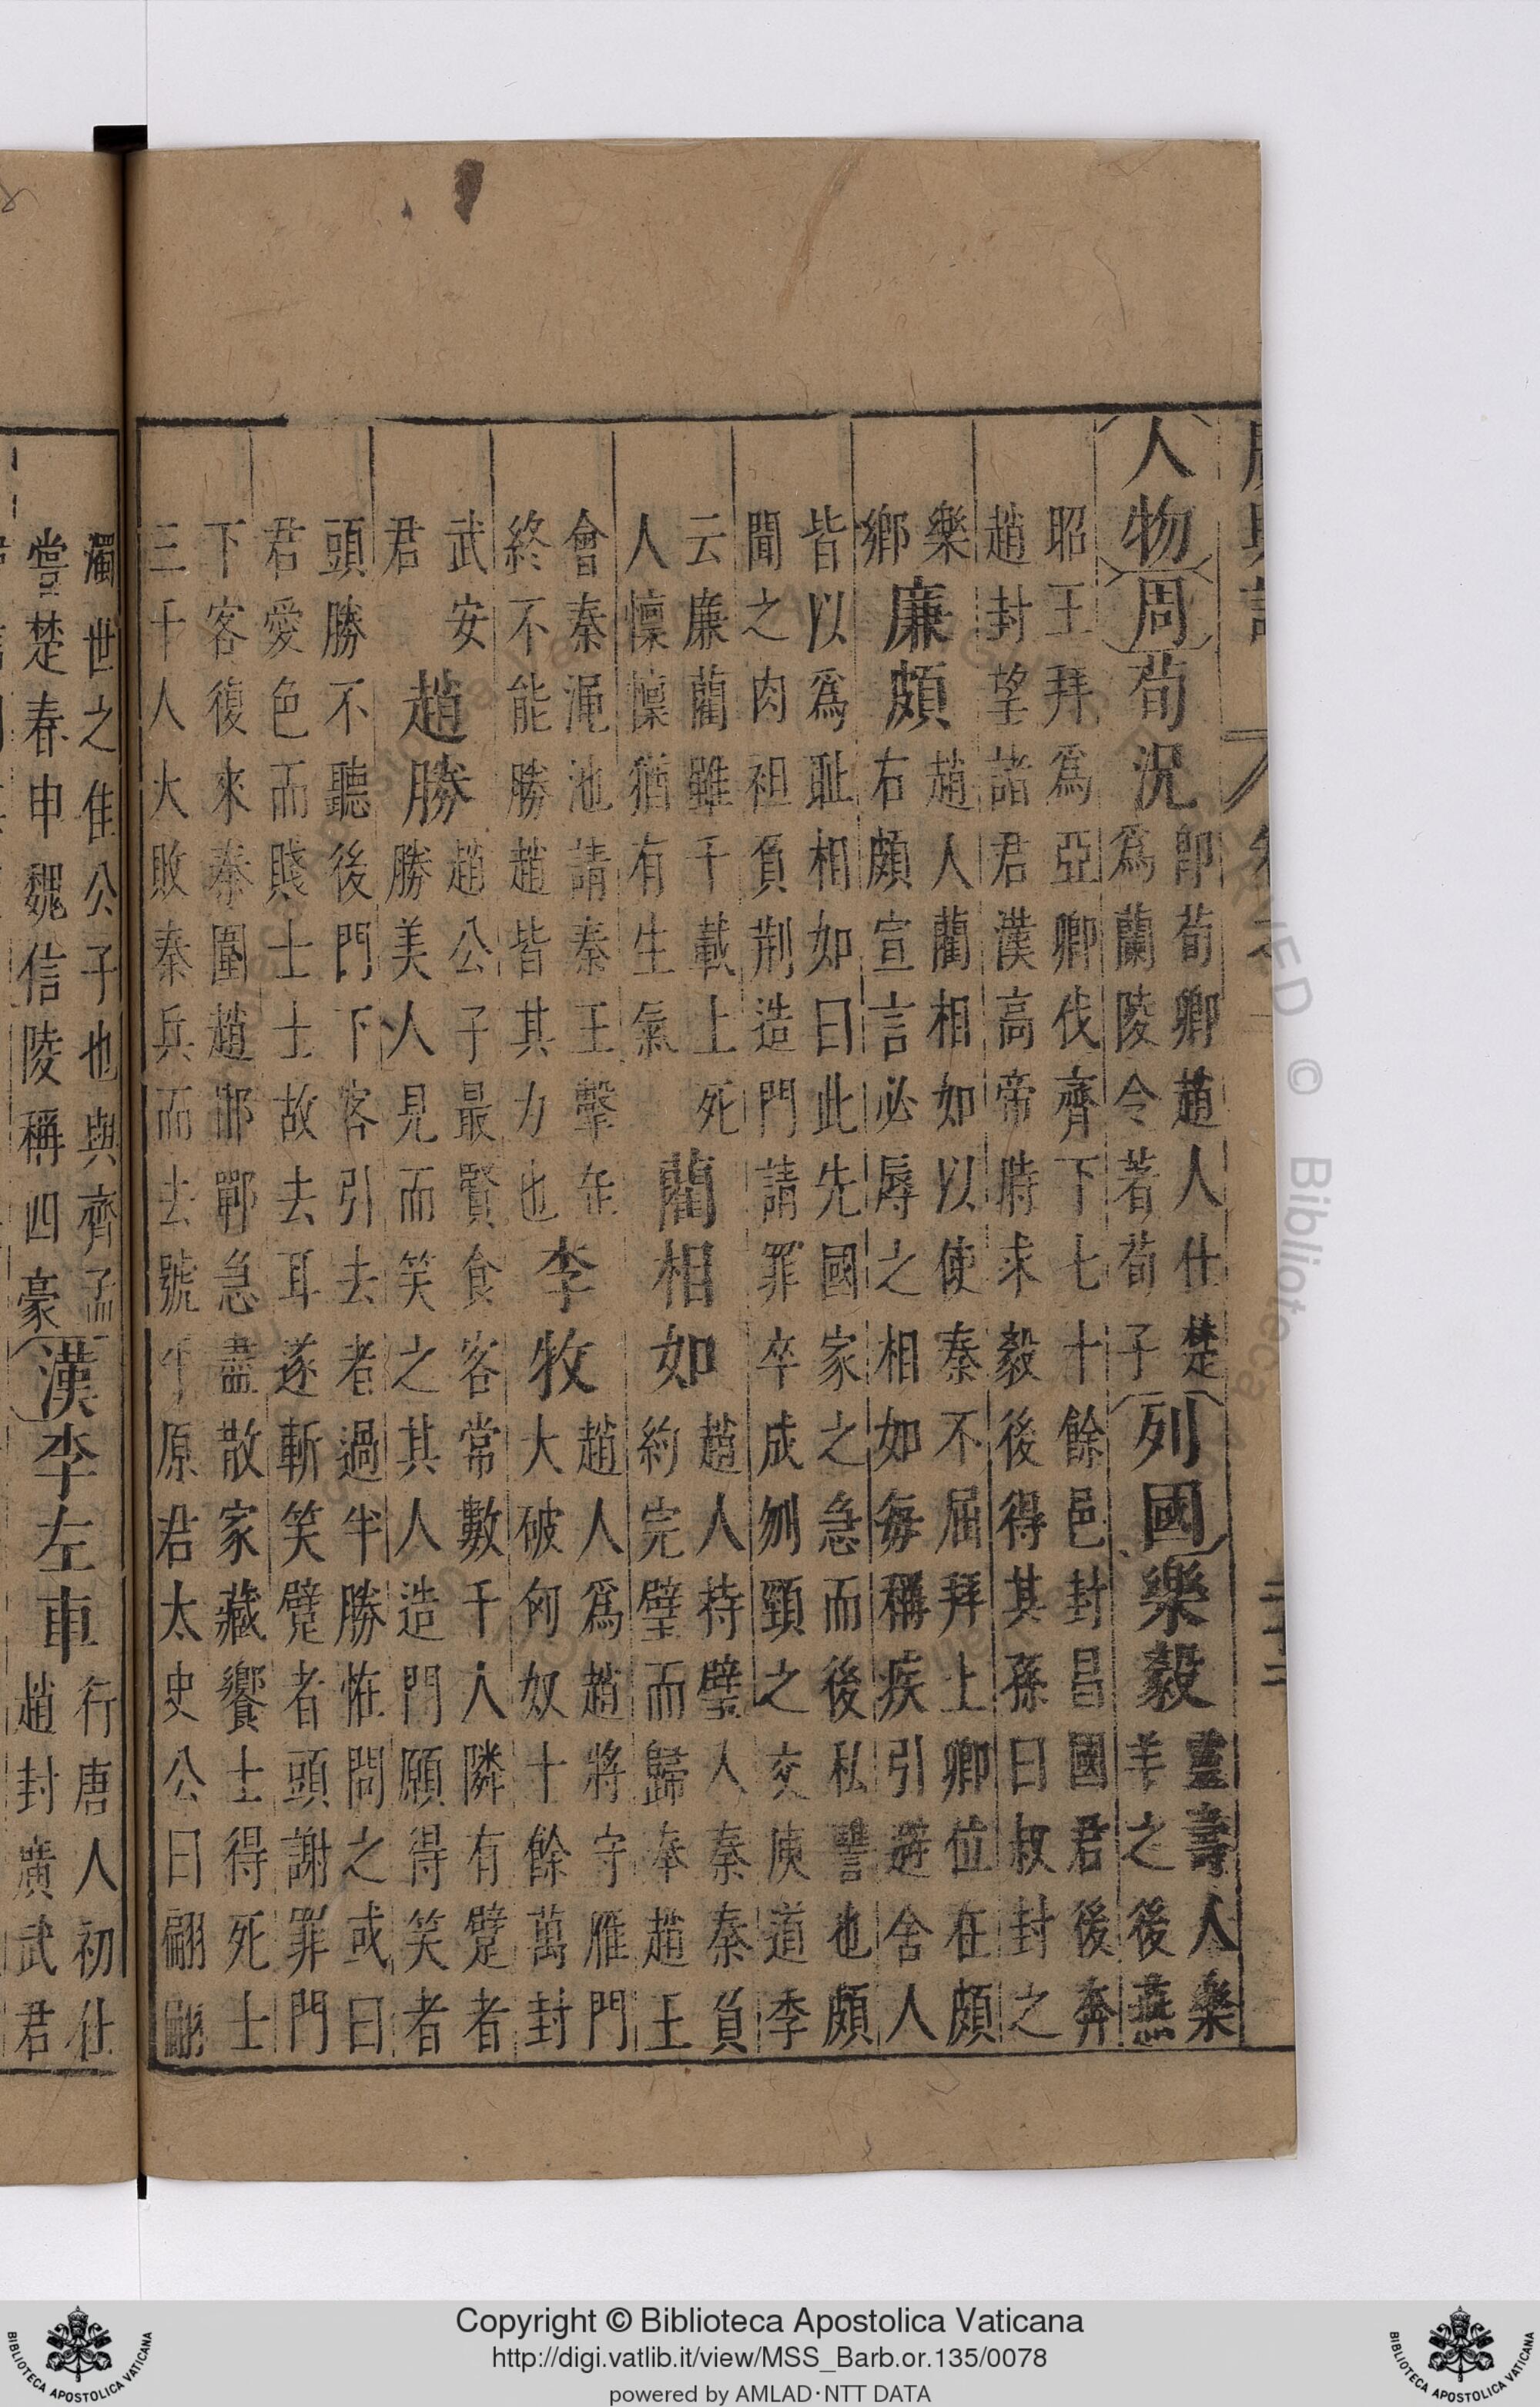 人物 周 荀況 即荀卿趙人仕楚 為蘭陵令著荀子 列國 樂毅 靈壽人樂 羊之後燕
昭王拜為亞卿伐齊下七十餘邑封昌國君後奔
趙封望諸君漢高帝時求毅後得其孫曰叔封之
樂
鄉 廉頗 趙人藺相如以使秦不屈拜上卿位在頗
右頗宣言必辱之相如每稱疾引避舍人
皆以為恥相如曰此先國家之急而後私讐也頗
聞之肉袒負荆造門請罪卒成刎頸之交庾道季
云廉藺雖千載上死
人懍懍猶有生氣 藺相如 趙人持璧入秦秦負
約完璧而歸奉趙王
會秦澠池請秦王擊缶
終不能勝趙皆其力也 李牧 趙人為趙將守雁門
大破匈奴十餘萬封
武安
君 趙勝 趙公子最賢食客常數千人隣有躄者
勝美人見而笑之其人造門願得笑者
頭勝不聽後門下客引去者過半勝怪問之或曰
君愛色而賤士士故去耳遂斬笑躄者頭謝罪門
下客復來秦圍趙邯鄲急盡散家藏饗士得死士
三千人大敗秦兵而去號平原君太史公曰翩翩
濁世之佳公子也與齊孟
嘗楚春申魏信陵稱四豪 漢 李左車 行唐人初仕
趙封廣武君
Copyright © Biblioteca Apostolica Vaticana
http://digi.vatlib.it/view/MSS_Barb.or.135/0078
powered by AMLAD·NTT DATA
BIBLIOTECA APOSTOLICA VATICANA
BIBLIOTECA APOSTOLICA VATICANA